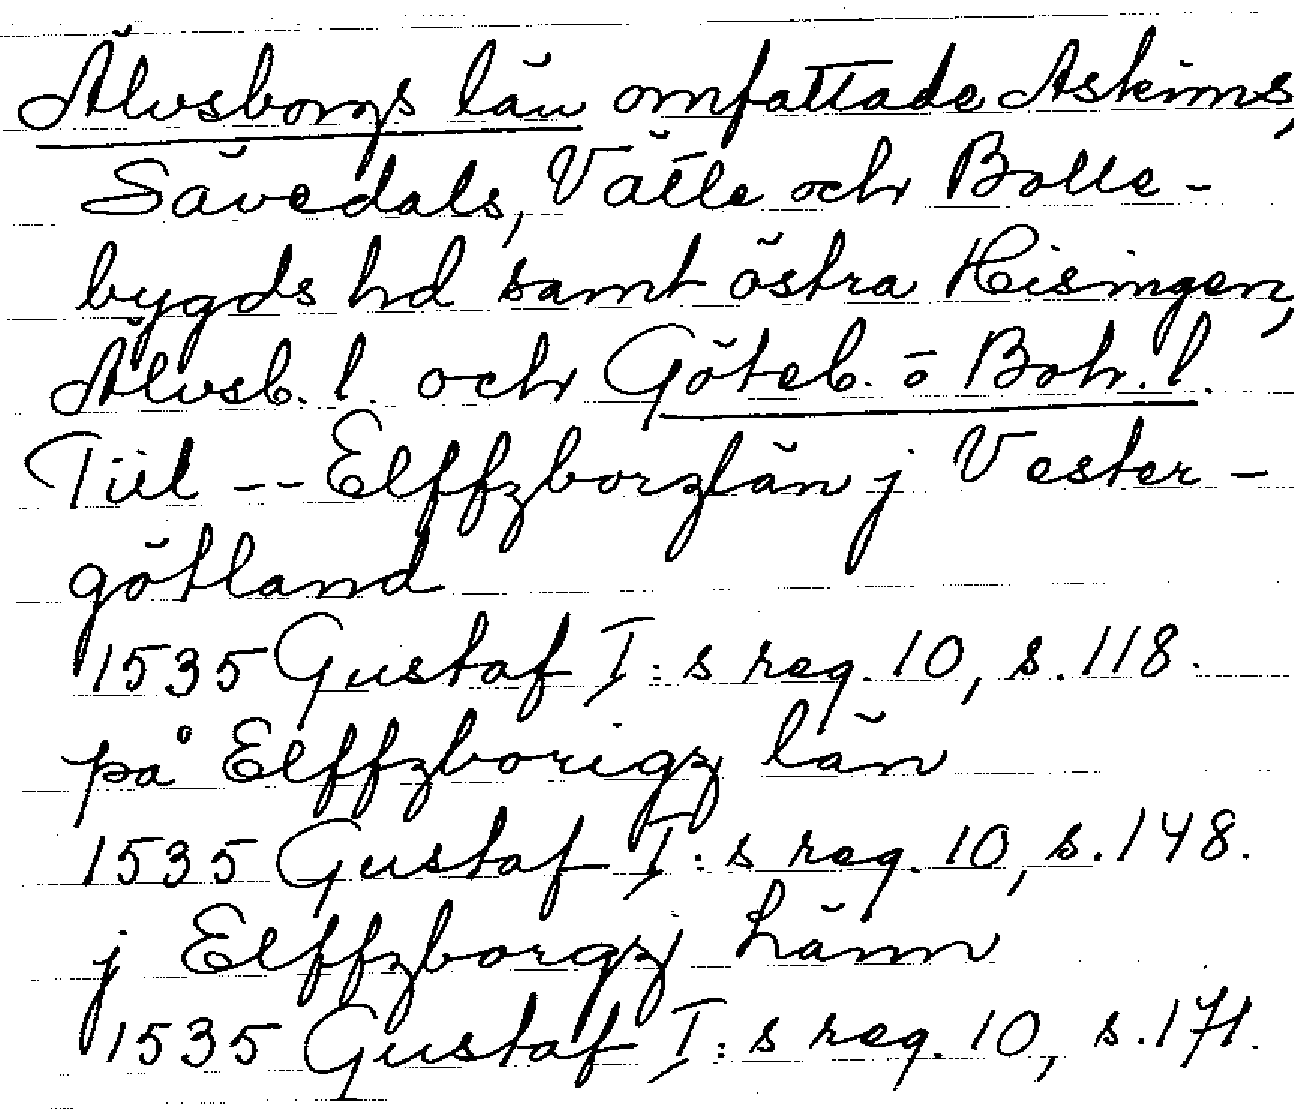 Älvsborgs län omfattade Askims,
Sävedals, Vättle och Bolle-
bygds hd samt östra Hisingen,
Älvsb. l. och Göteb. o Boh. l.
Tiil -- Elffzborzlän j Vester-
götland
1535 Gustaf I:s reg. 10, s. 118.
på Elffzborigz län
1535 Gustaf I:s reg. 10, s. 148.
j Elffzborgz Länn
1535 Gustaf I:s reg. 10, s. 171.